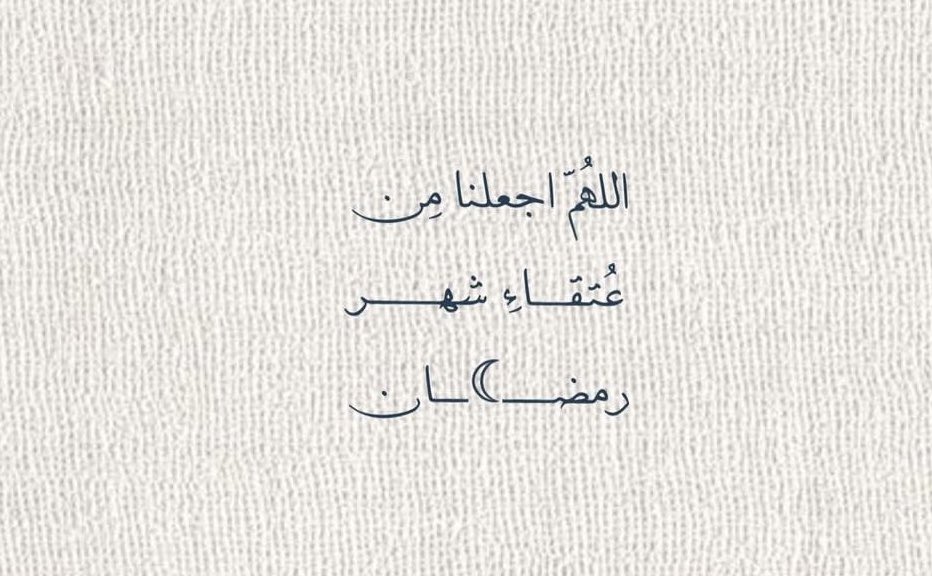 اللهُمّ اجعلنا مِن
عُتقـــاءِ شهـــــر
رمضـــــان